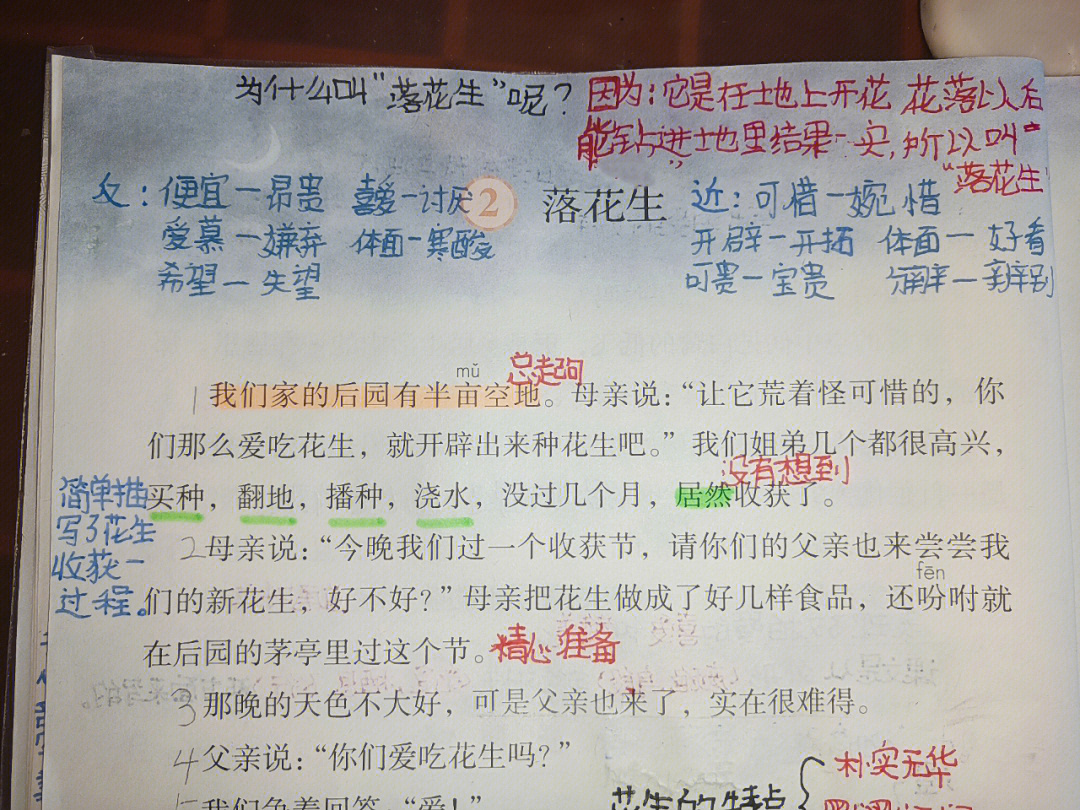 为什么叫“落花生”呢？
因为：它是在土地上开花 花落以后
能钻进土地里结果实，所以叫
“落花生”
反：便宜—昂贵 喜爱—讨厌
爱慕—嫌弃 体面—寒酸
希望—失望
2 落花生
近：可惜—婉惜
开辟—开拓 体面—好看
可贵—宝贵 分辨—辨别
总起句
mǔ
1我们家的后园有半亩空地。母亲说：“让它荒着怪可惜的，你
们那么爱吃花生，就开辟出来种花生吧。”我们姐弟几个都很高兴，
没有想到
买种，翻地，播种，浇水，没过几个月，居然收获了。
简单描
写了花生
收获一
过程。
2母亲说：“今晚我们过一个收获节，请你们的父亲也来尝尝我
fēn
们的新花生，好不好？”母亲把花生做成了好几样食品，还吩咐就
在后园的茅亭里过这个节。精心准备
3那晚的天色不大好，可是父亲也来了，实在很难得。
4父亲说：“你们爱吃花生吗？”
朴实无华
花生的特点
5我们争着回答：“爱！”